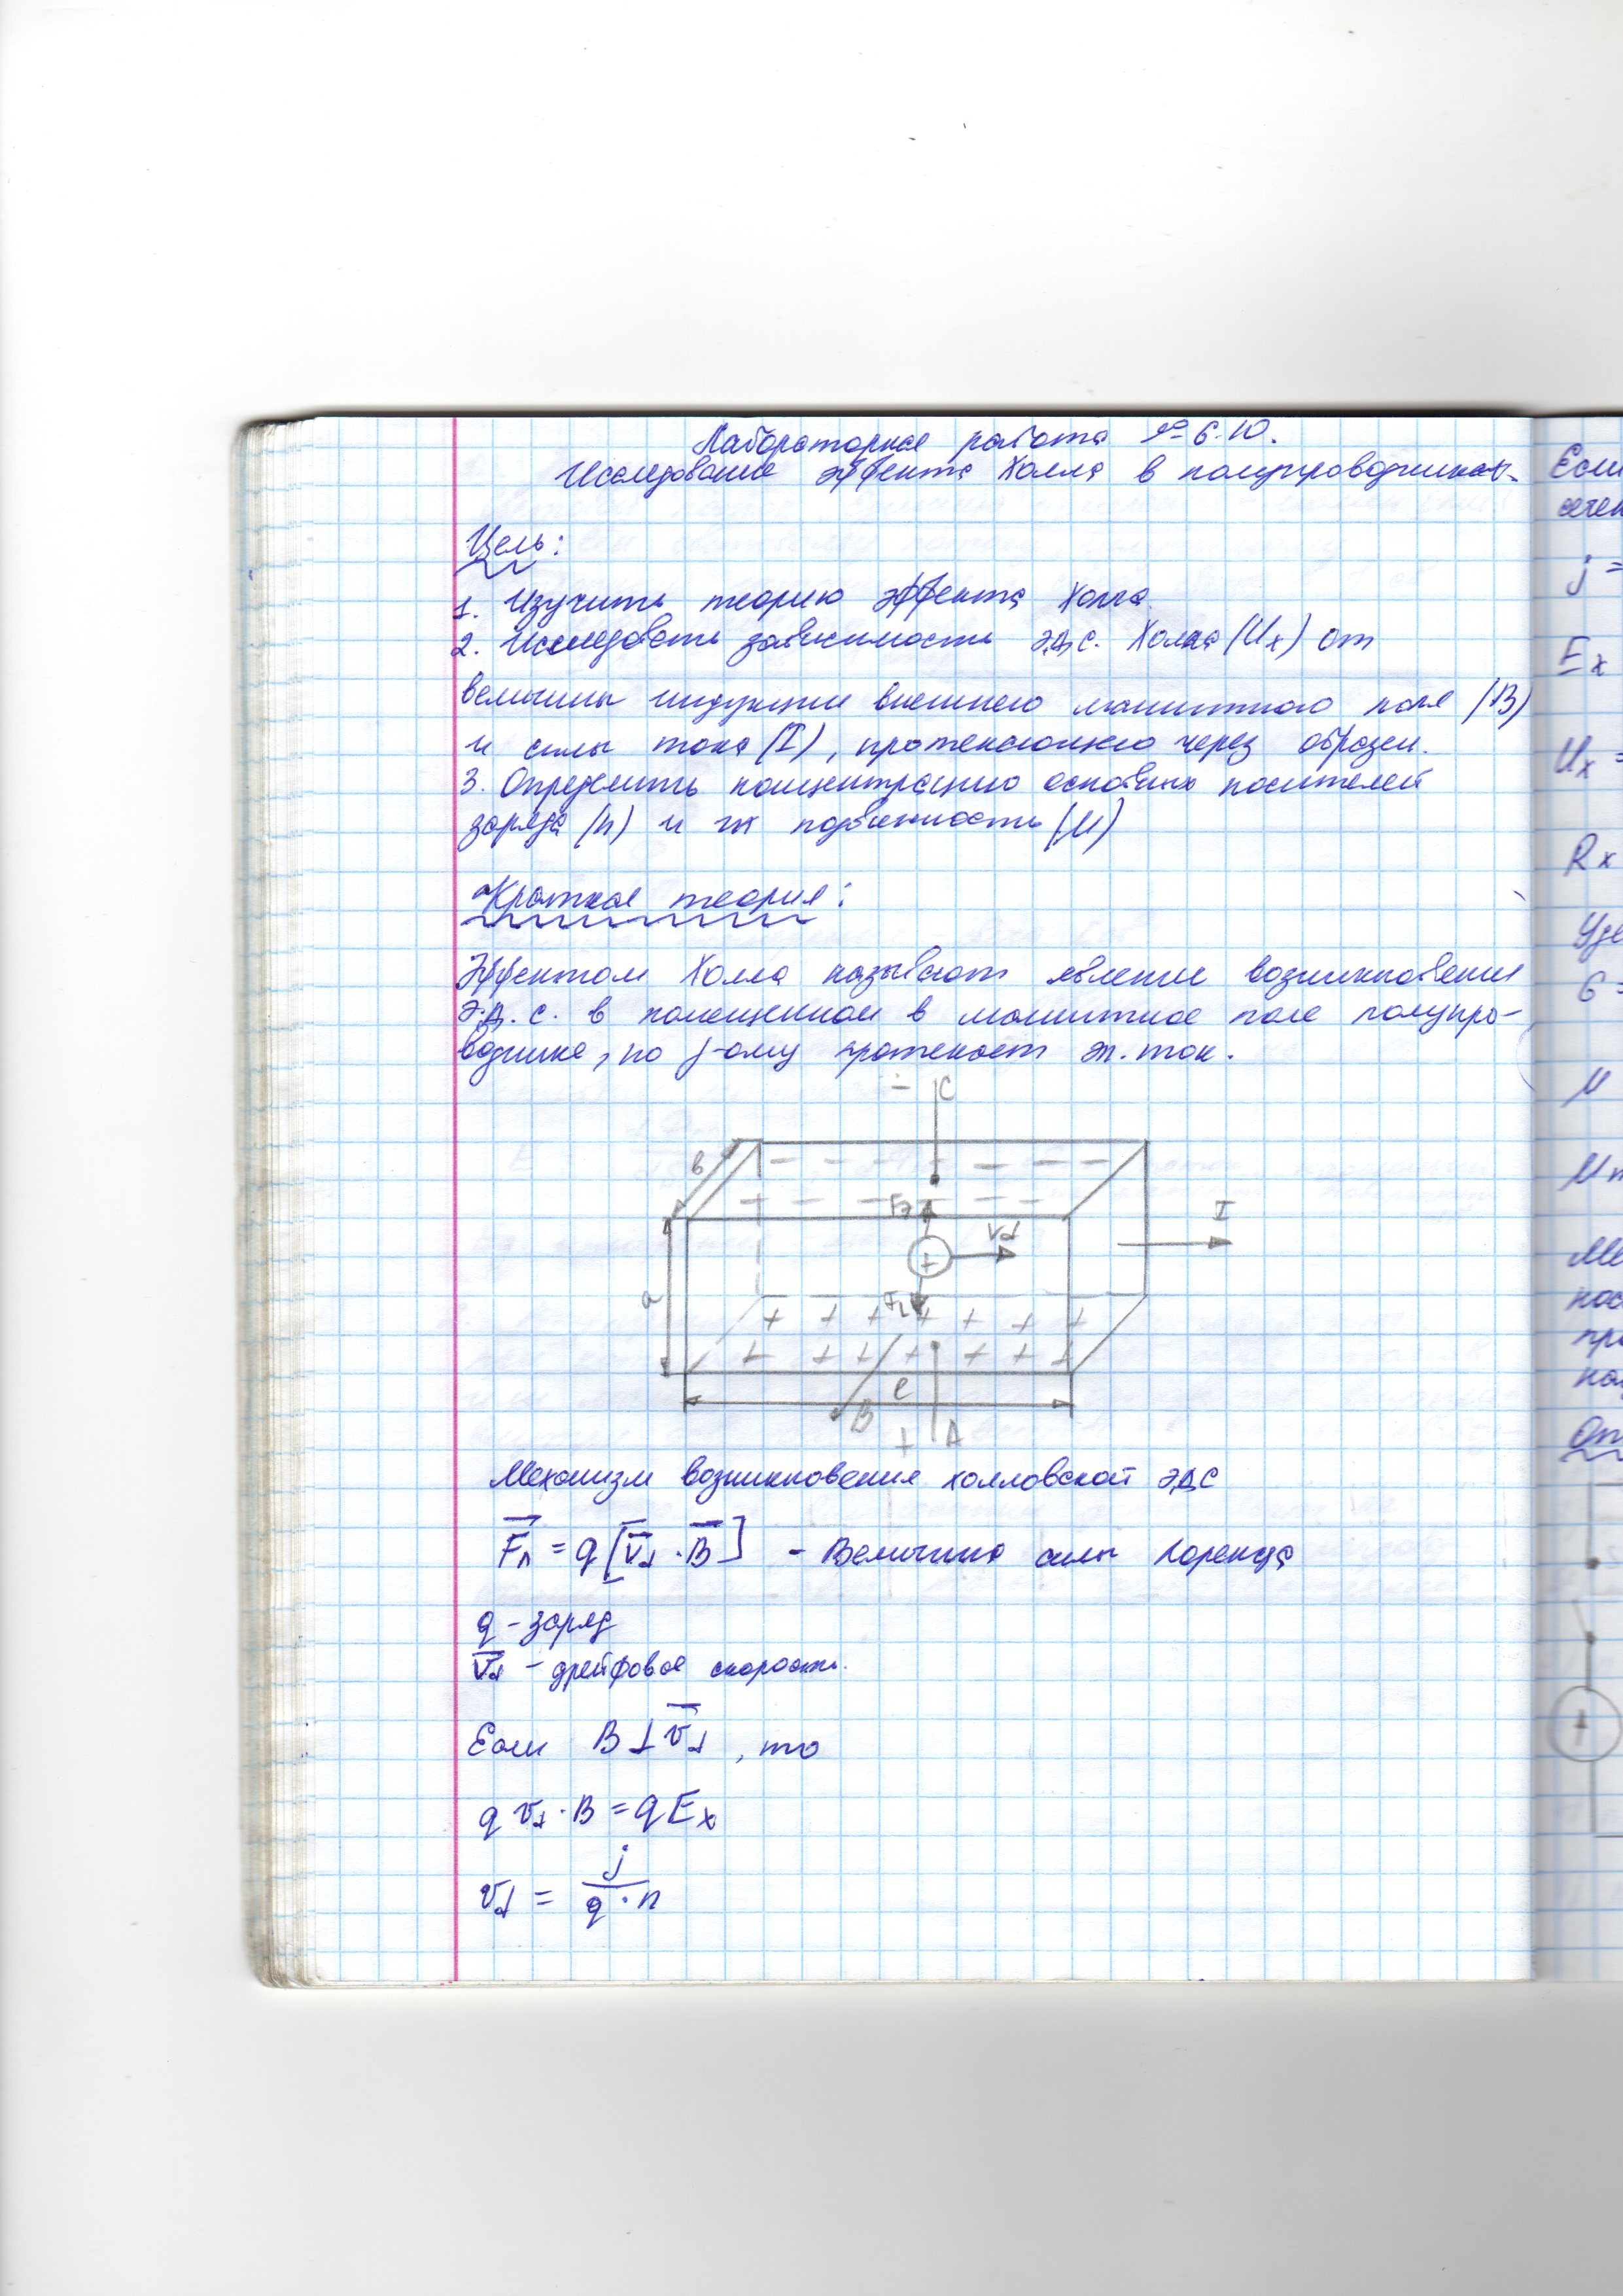 Лабораторная работа № 6.10.
Исследование эффекта Холла в полупроводниках.
Цель:
1. Изучить теорию эффекта Холла.
2. Исследовать зависимость э.д.с. Холла (Uх) от
величины индукции внешнего магнитного поля (B)
и силы тока (I), протекающего через образец.
3. Определить концентрацию основных носителей
заряда (n) и их подвижность (U)
Краткая теория:
Эффектом Холла называют явление возникновения
э.д.с. в помещенном в магнитное поле полупро-
воднике, по j-ому протекает эл. ток.
- C
в
Fэ
Vd
I
+
a
Fл
l
B
+ A
Механизм возникновения холловской ЭДС
Fл = q[Vd · B] - Величина силы Лоренца
q - заряд
Vd - дрейфовая скорость.
Если B ⊥ vd, то
q vd · B = qEx
vd = j / q · n
Если
сечен
j =
Ex
Ux =
Rx
Уде
σ =
Ме
нос